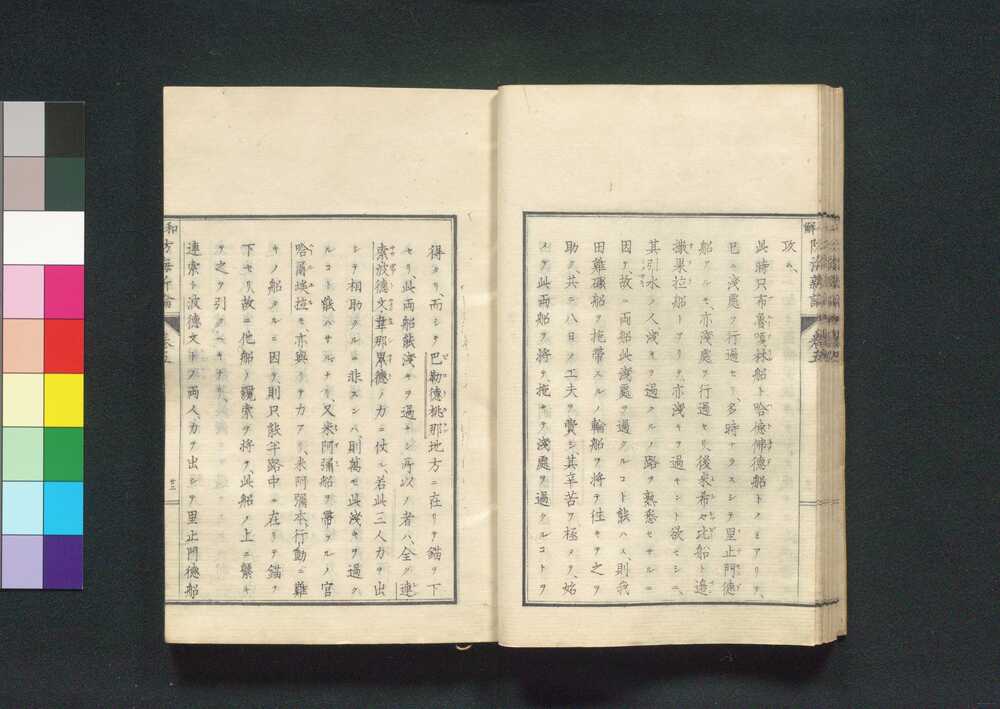 攻ム、
此時只布魯嘎林船ト哈德佛德船トノミアリテ、
已ニ淺處ヲ行過セリ、多時ナラスシテ里止門德
船クルモ、亦淺處ヲ行過セリ、後來希々比船ト
其引水ノ人、淺キヲ過クルノ路ヲ熟悉セサルニ
因ル、故ニ両船此淺處ヲ過クルコト能ハス、則我
田雞礮船ヲ拖帶スルノ輪船ヲ將テ徃キテ之ヲ
助ク、共ニ八日ノ工夫ヲ費シ、其辛苦ヲ極メ、始
メテ此両船ヲ將テ、拖キテ淺處ヲ過クルコトヲ
得タリ、而シテ巴勒德桃那地方ニ在リテ錨ヲ下
セリ、此両船能淺キヲ過キシ所以ノ者ハ、全ク連
索波德文、韋那累德ノ力ニ仗ル、若此三人力ヲ出
シテ相助クルニ非スンハ、則萬モ此淺キヲ過ク
ルコト能ハサルナリ、又米阿彌船ヲ帶フルノ官
哈爾埃拉モ、亦與リテ力アリ、米阿彌本行動ニ難
キノ船タルニ因テ、則只能半路中ニ在リテ錨ヲ
下セリ、故ニ他船ノ纜索ヲ將テ、此船ノ上ニ繫キ
テ之ヲ引ク
連索ト波德文トノ両人、力ヲ出シテ里止門德船
廿二